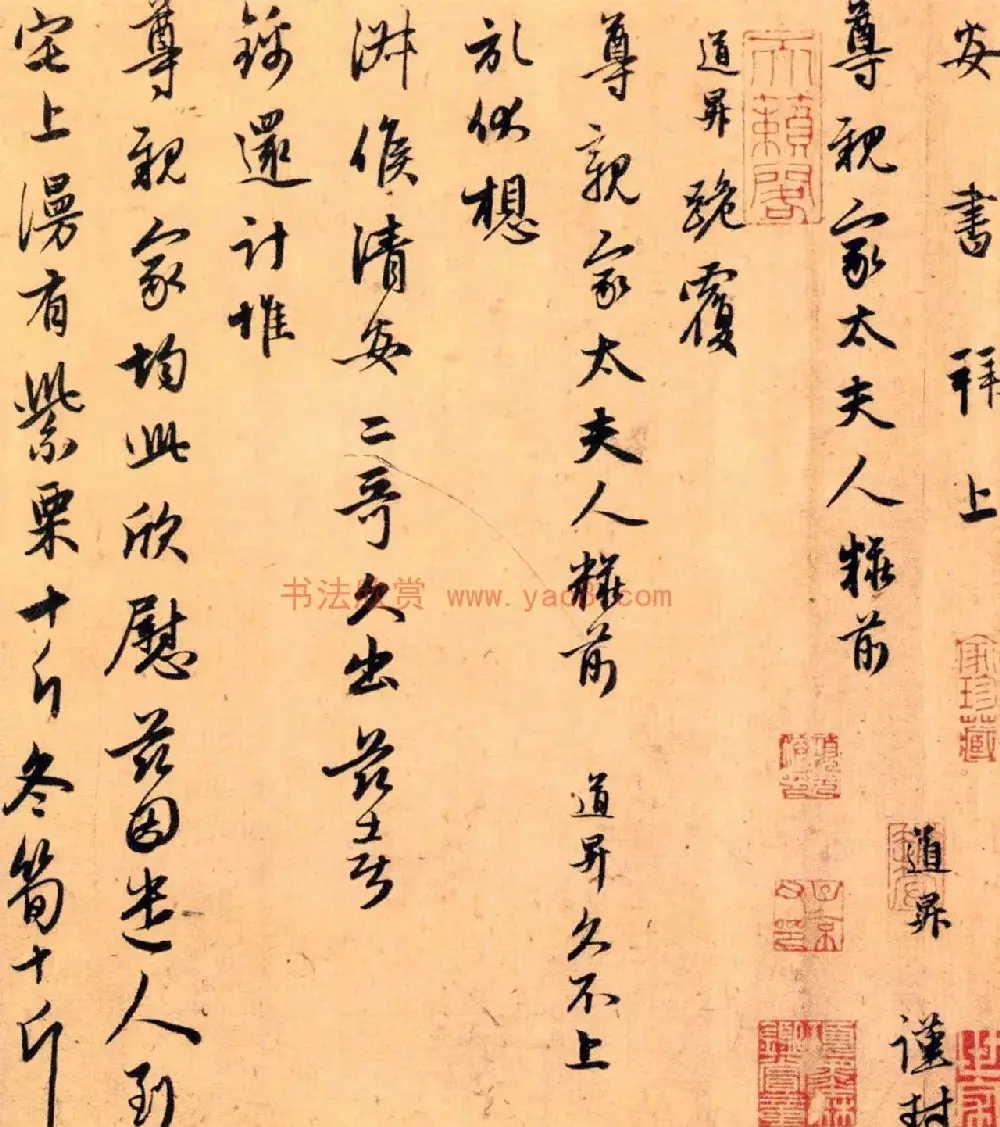 安書拜上　道昇　謹封
尊親家太夫人粧前
道昇跪覆
尊親家太夫人粧前　道昇久不上
狀伏想
淋候清安二哥久出茲喜
錦還計惟
尊親家均此欣慰茲因遣人到
宅上漫有紫栗十斤冬笋十斤
天籟閣
珍藏
书法欣赏 www.yac8.com